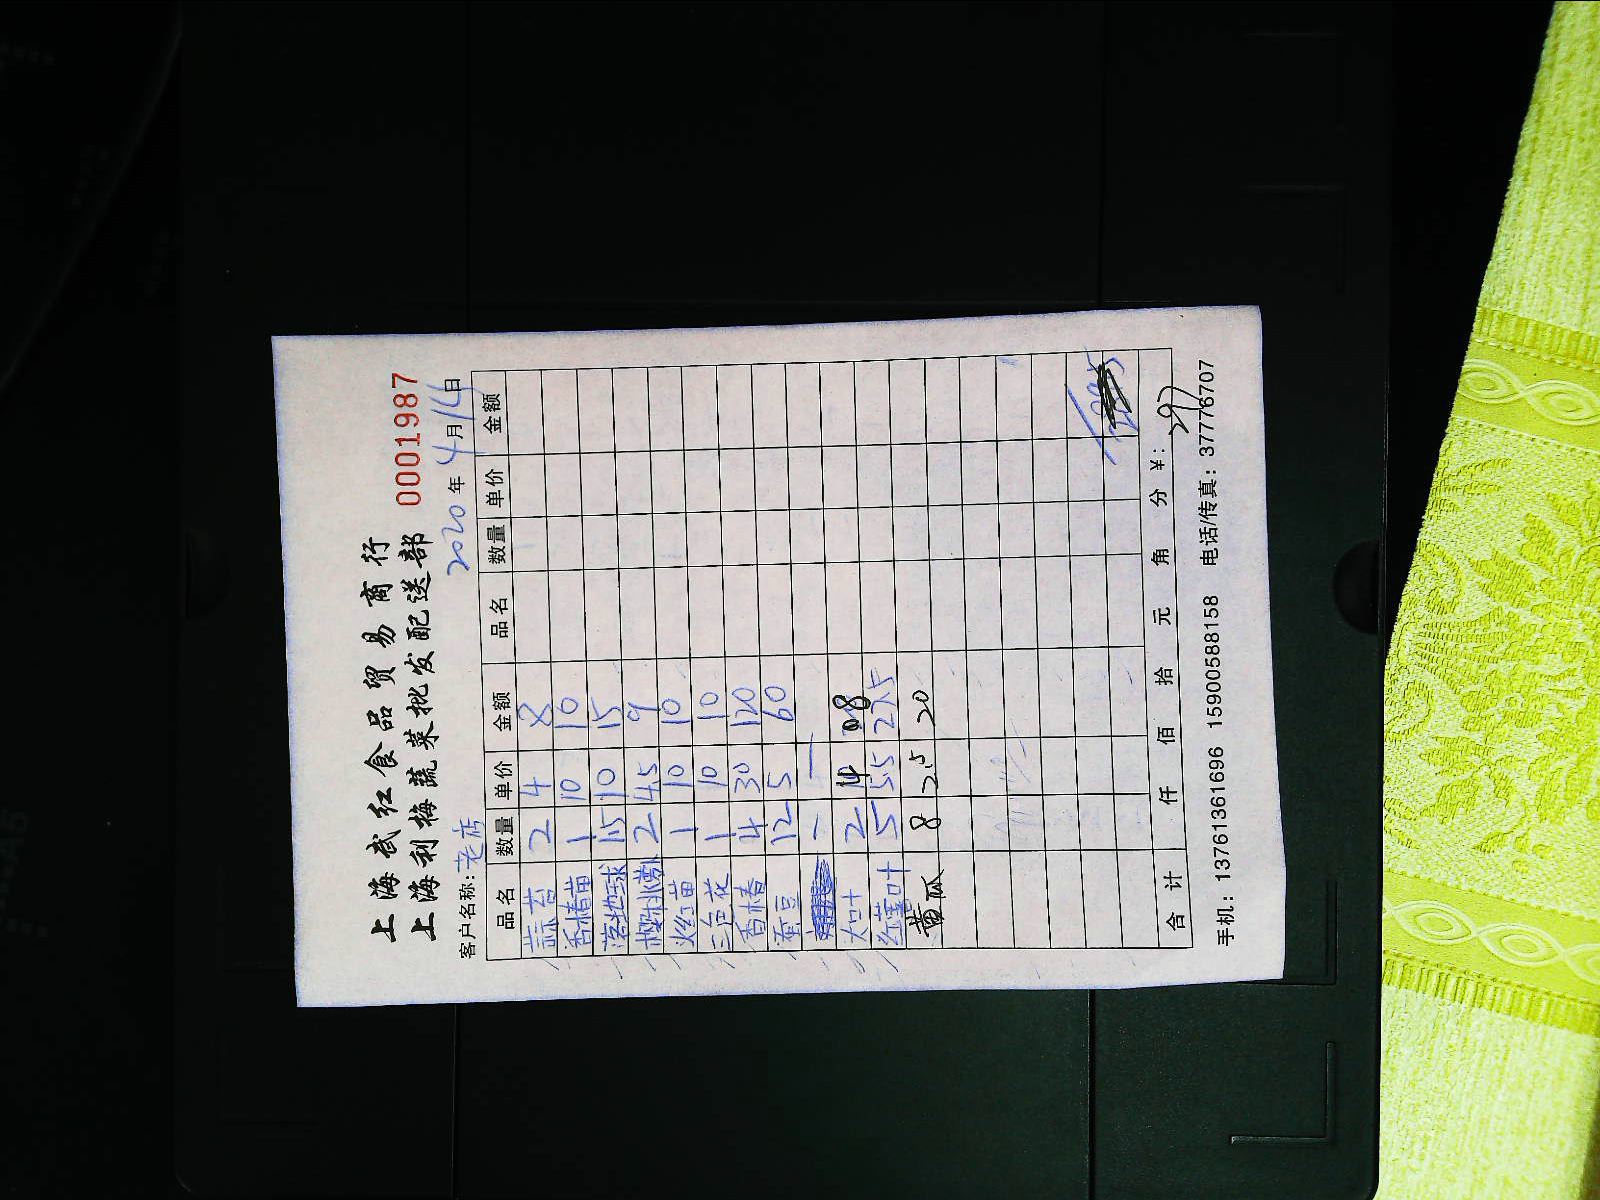 上海武红食品贸易商行
上海利梅蔬菜批发配送部
0001987
客户名称：老店 2020年4月14日
品名 数量 单价 金额 品名 数量 单价 金额
蒜苔 2 4 8
香椿苗 1 10 10
落地球 1.5 10 15
樱桃 2 4.5 9
火红苗 1 10 10
三色花 1 10 10
香椿 4 30 120
蚕豆 12 5 60
大叶 2 8
红薯叶 5 5.5 27.5
黄瓜 8 2.5 20
合计 仟 佰 拾 元 角 分 ¥：297
手机：13761361696 15900588158 电话/传真：37776707